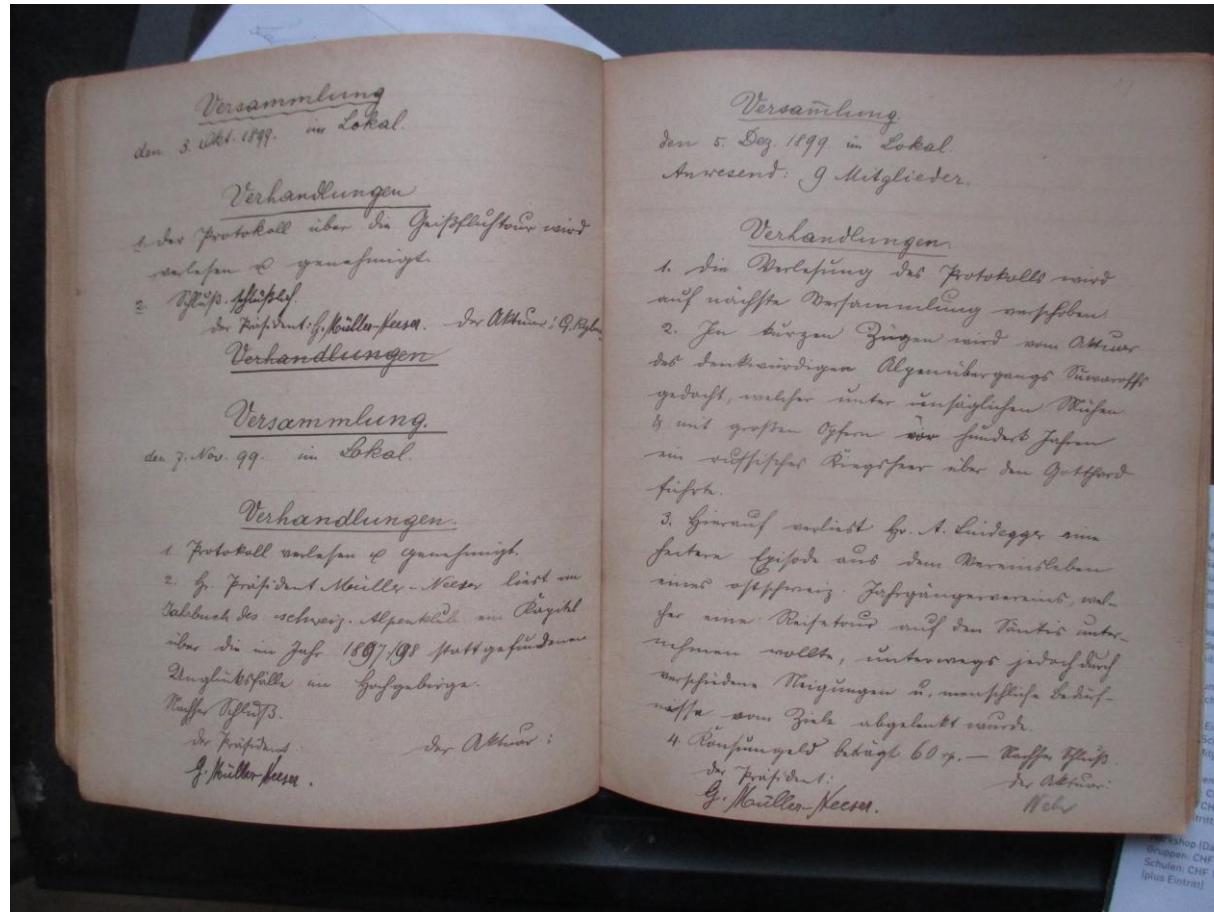 Versammlung
den 3. Okt. 1899. im Lokal.
Verhandlungen
1. Der Protokoll über die Geißfluhtour wird
verlesen & genehmigt.
2. Schluß.
der Präsident: G. Müller-Neeser. Der Aktuar:
Verhandlungen
Versammlung.
den 7. Nov. 99. im Lokal.
Verhandlungen.
1. Protokoll verlesen & genehmigt.
2. Hr. Präsident Müller-Neeser liest im
Jahrbuch des schweiz. Alpenklub ein Kapitel
über die im Jahr 1897/98 stattgefundenen
Unglücksfälle im Hochgebirge.
Nachher Schluß.
der Präsident. Der Aktuar:
G. Müller-Neeser.
Versam̄lung.
den 5. Dez. 1899 im Lokal.
Anwesend: 9 Mitglieder.
Verhandlungen.
1. Die Verlesung des Protokolls wird
auf nächste Versammlung verschoben.
2. In kurzen Zügen wird vom Aktuar
des denkwürdigen Alpenübergangs Suwaroffs
gedacht, welcher unter unsäglichen Mühen
& mit großen Opfern vor hundert Jahren
ein russisches Kriegsheer über den Gotthard
führte.
3. Hierauf verliest Hr. A. Lüdegger eine
heitere Episode aus dem Vereinsleben
eines ostschweiz. Jahrgängervereins, wel-
cher eine Reisetour auf den Säntis unter-
nehmen wollte, unterwegs jedoch durch
verschiedene Neigungen u. menschliche Bedürf-
nisse vom Ziele abgelenkt wurde.
4. Konsumgeld beträgt 60 rp. — Nachher Schluß.
der Präsident: der Aktuar:
G. Müller-Neeser. Weber
Workshop (Da
Gruppen: CHF
Schulen: CHF
(plus Eintritt)